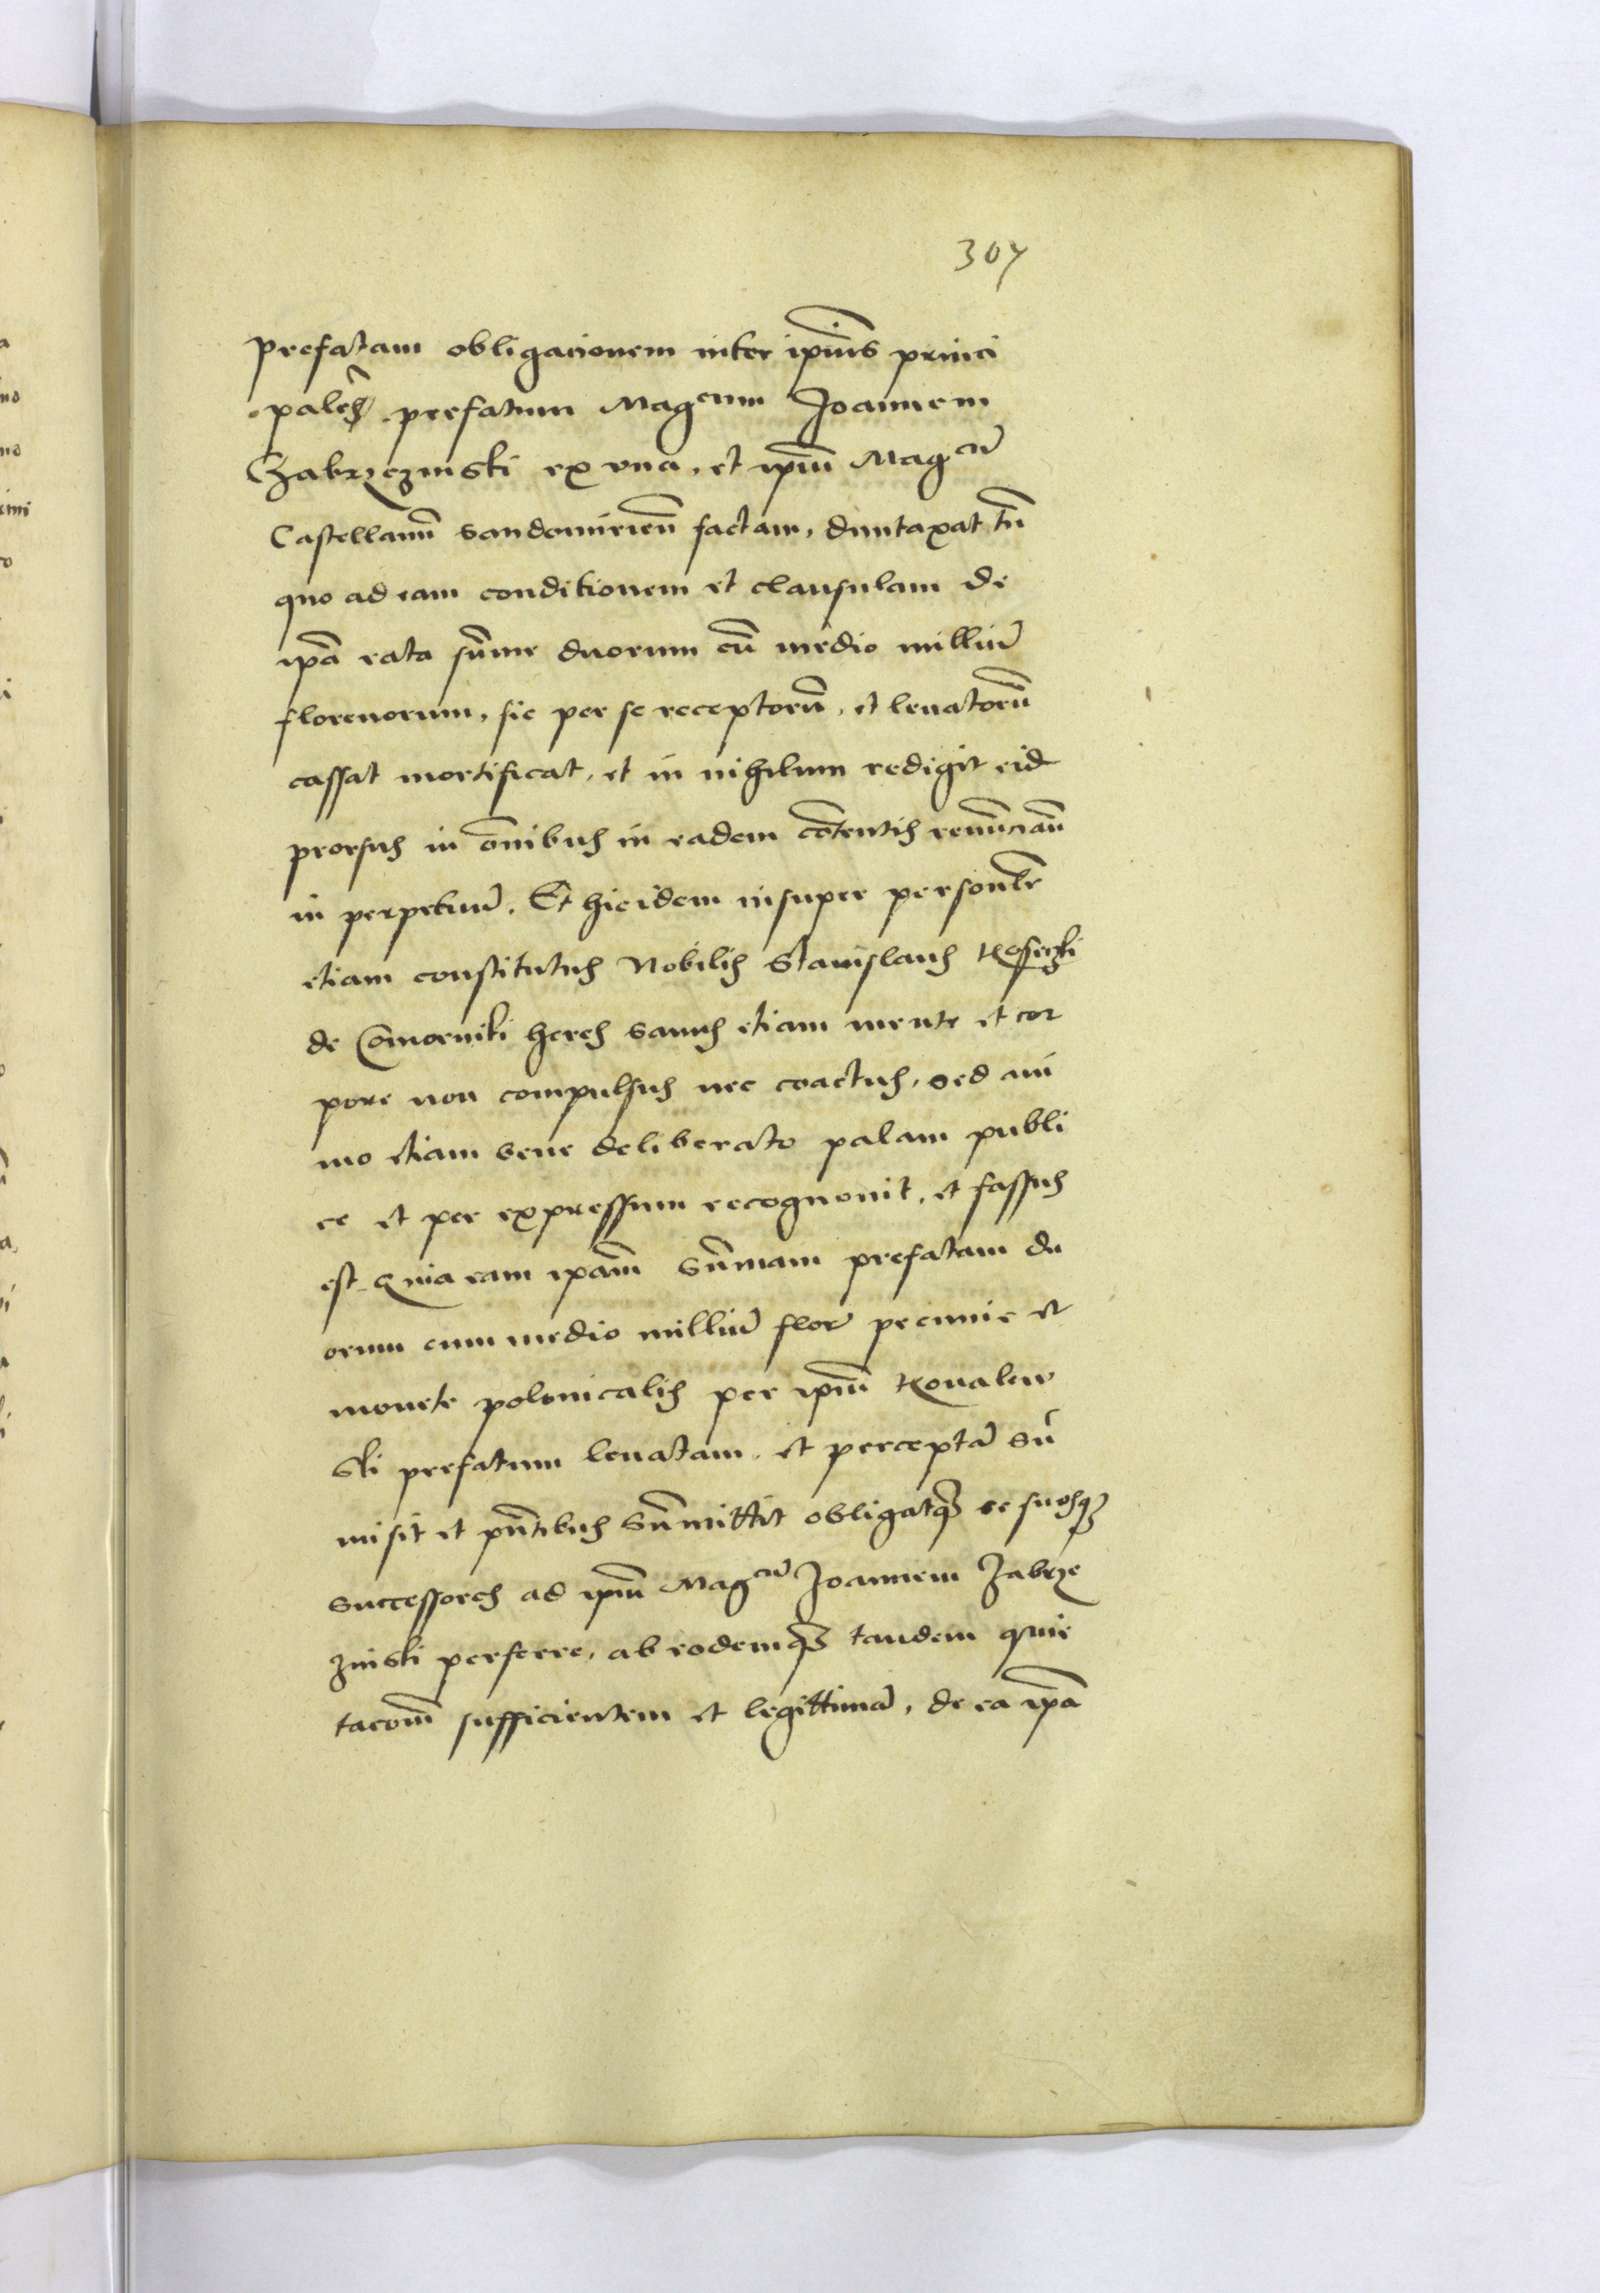 307
prefatam obligacionem inter ip̄ius princi
palēs prefatum Magcum Joannem
Zabrzezinski ex vna, et ip̄m Magcū
Castellanū Sandomirien̄ factam, duntaxat tn̄
quo ad eam conditionem et clausulam de
ip̄a rata sūme duorum cū medio milliū
florenorum, sic per se receptorū, et leuatorū
cassat mortificat, et in nihilum redigit eid
prorsus in ōnibus in eadem cōtentis renūciān
in perpetuū. Et hic idem insuper personlr̄
etiam constitutus Nobilis Stanislaus
de Comorniki heres sanus etiam mente et cor
pore non compulsus nec coactus, sed ani
mo etiam bene deliberato palam publi
ce et per expressum recognouit, et fassus
est Quia eam ip̄am Sūmam prefatam du
orum cum medio milliū flor̄ pecunie et
monete polonicalis per ip̄m Koualew
ski prefatum leuatam, et perceptā sū
misit et pn̄tibus Sūmittit obligatq3 se suosq3
Successores ad ip̄m Magcū Joannem Zabrze
zinski perferre, ab eodemq3 tandem quie
tacōm sufficientem et legittimā, de ea ip̄a